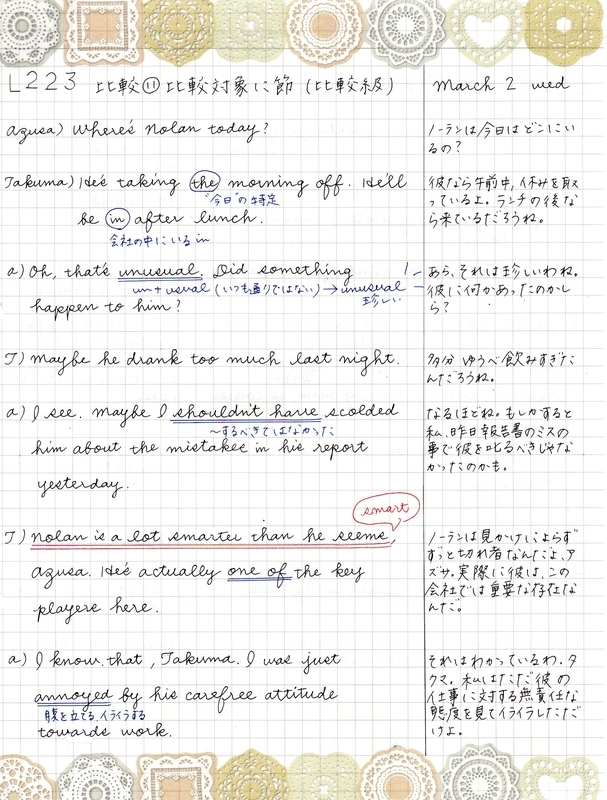 L223 比較⑪比較対象に節(比較級)
March 2 wed
Azusa) Where's Nolan today?
ノーランは今日はどこにい
るの?
Takuma) He's taking the morning off. He'll
"今日"の特定
be in after lunch.
会社の中にいる in
彼なら午前中,休みを取
っているよ。ランチの後な
ら来ているだろうね。
a) Oh, that's unusual. Did something
un + usual (いつも通りではない) → unusual
珍しい
happen to him?
あら、それは珍しいわね。
彼に何かあったのかし
ら?
T) Maybe he drank too much last night.
多分 ゆうべ飲みすぎた
んだろうね。
a) I see. Maybe I shouldn't have scolded
〜するべきではなかった
him about the mistakes in his report
yesterday.
なるほどね。もしかすると
私、昨日報告書のミスの
事で彼を叱るべきじゃな
かったのかも。
smart
T) Nolan is a lot smarter than he seems,
Azusa. He's actually one of the key
players here.
ノーランは見かけによらず
ずっと切れ者なんだよ、ア
ズサ。実際に彼は、この
会社では重要な存在な
んだ。
a) I know that, Takuma. I was just
annoyed by his carefree attitude
腹を立てる、イライラする
towards work.
それはわかっているわ。タ
クマ。私はただ彼の
仕事に対する無責任な
態度を見てイライラしただ
けよ。